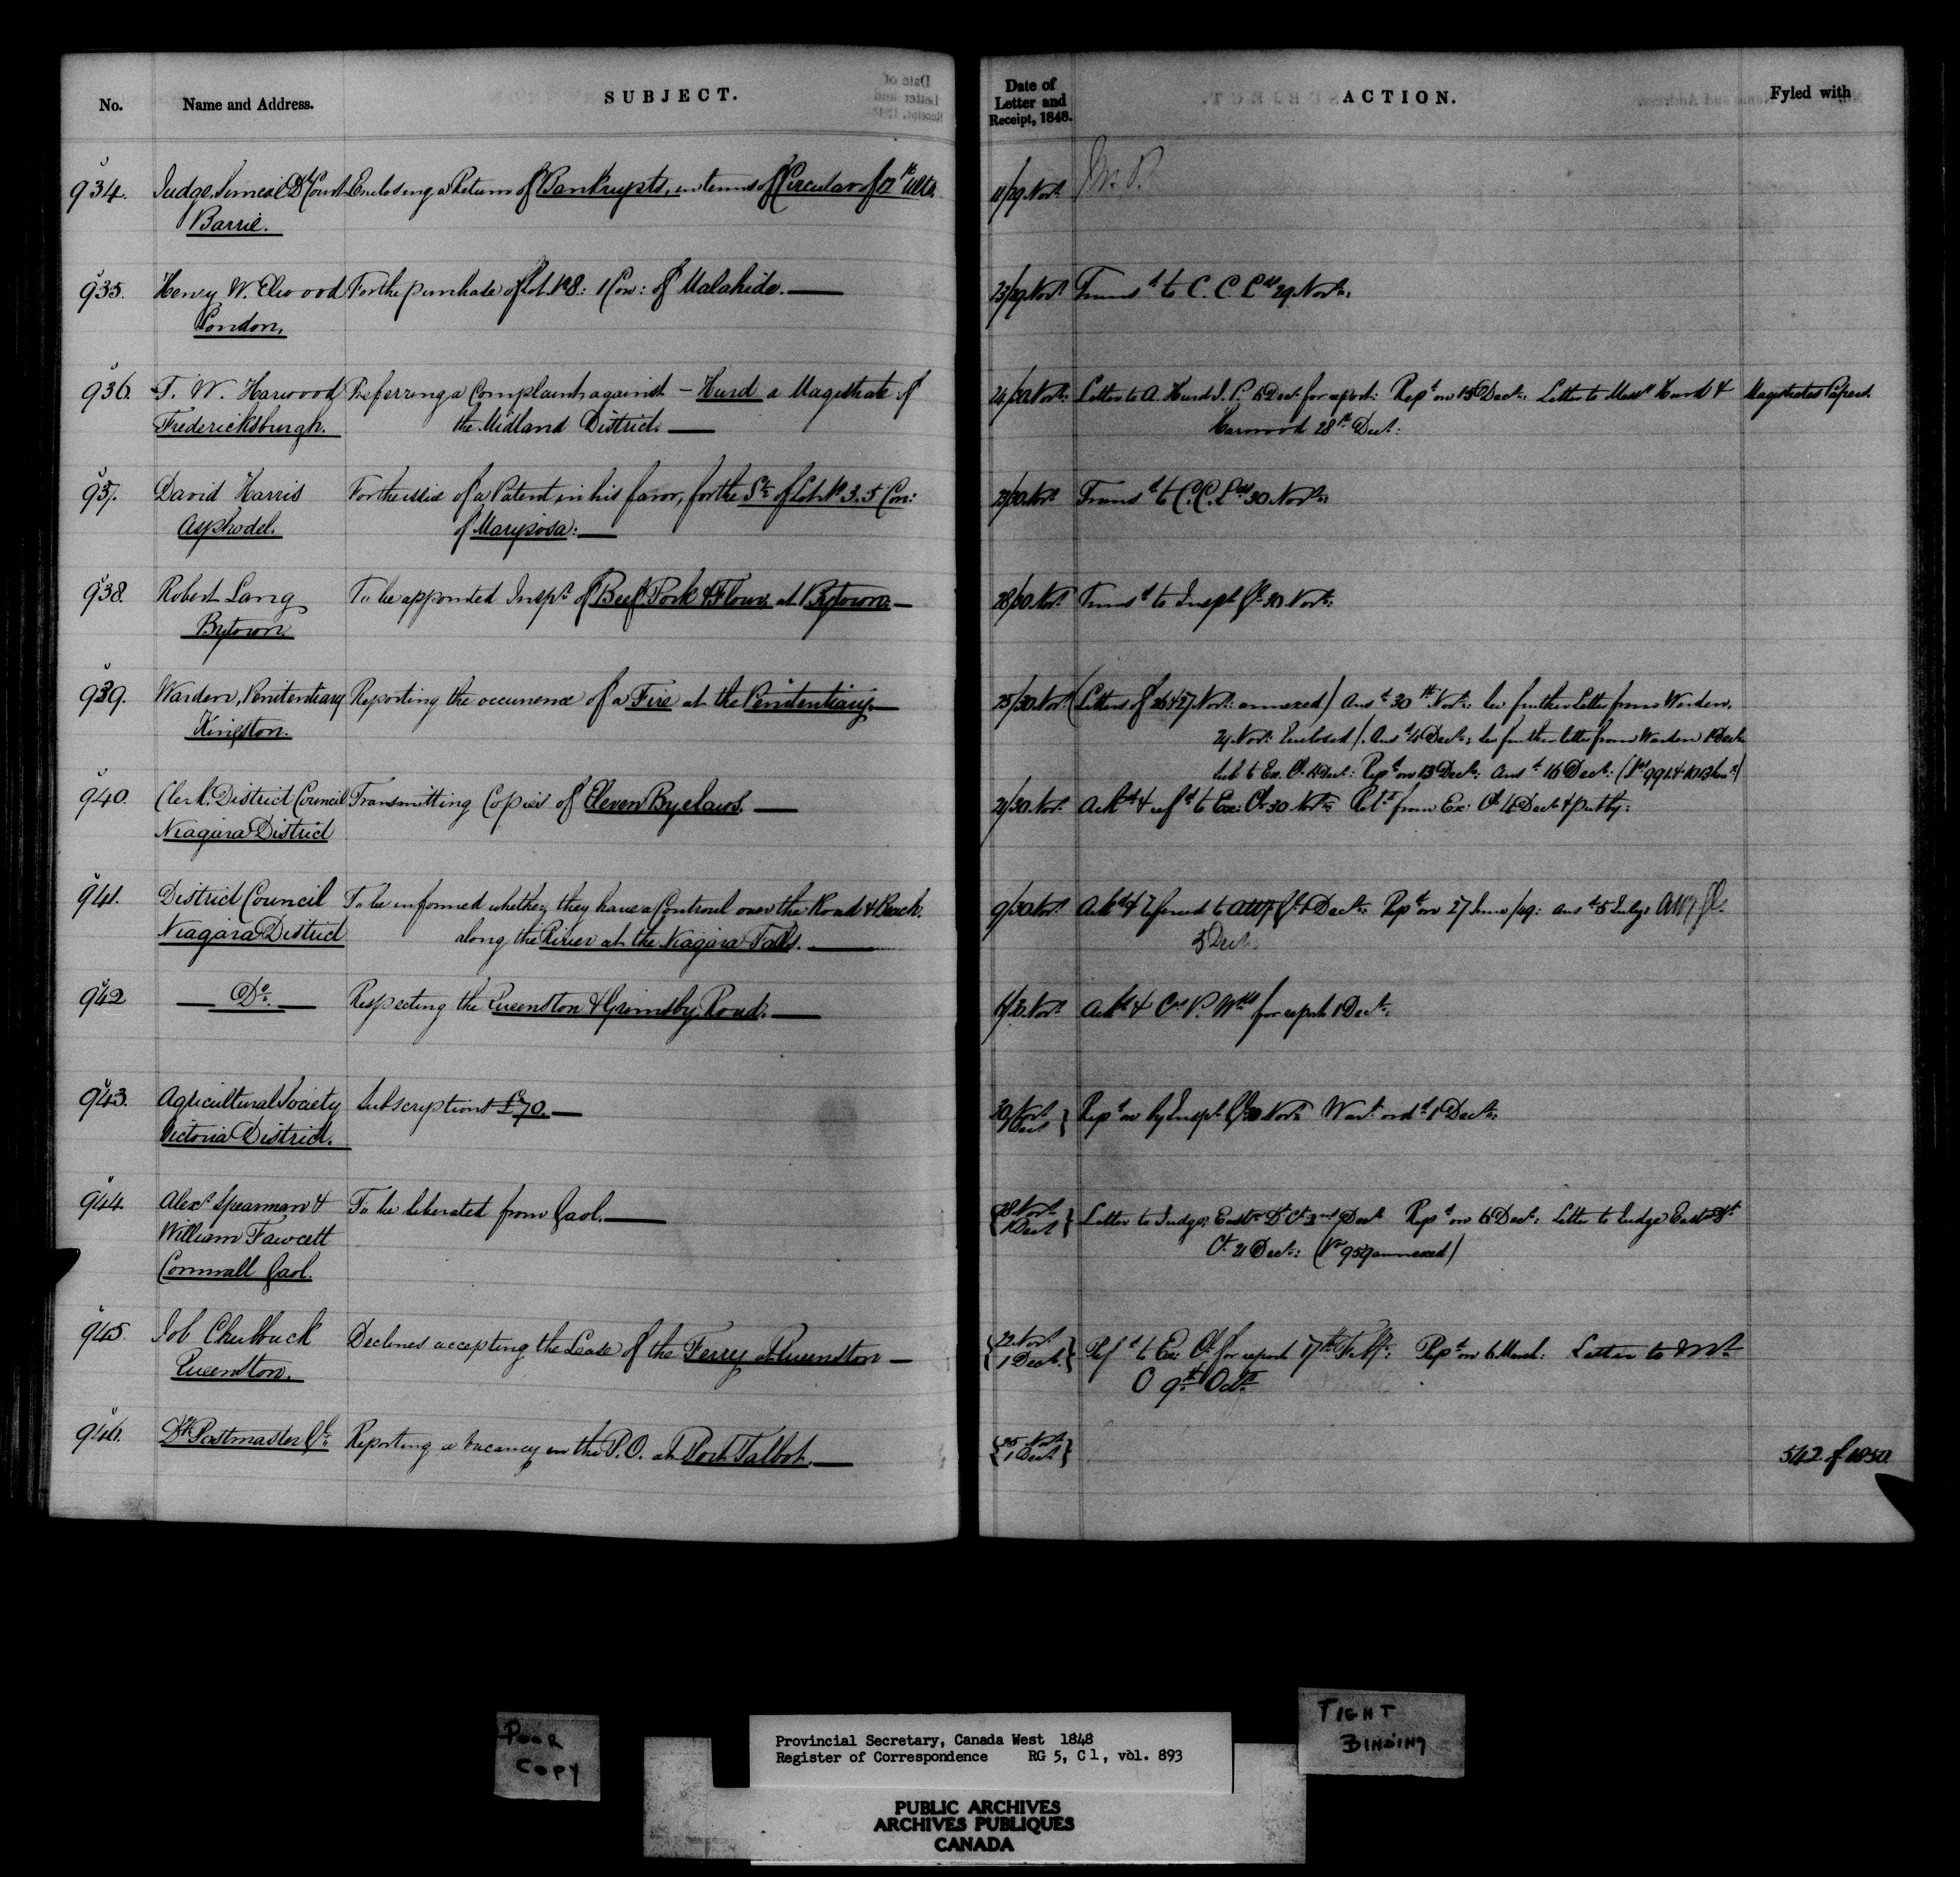 No. Name and Address. SUBJECT. Date of Letter and Receipt, 1848. ACTION. Fyled with
934. Judge, Simcoe Dt Court Enclosing a Return of Bankrupts, in terms of Circular of 17th ulto 11/29 Novr
Barrie.
935. Henry W. Elwood For the purchase of Lot No 8: 1 Con: of Malahide. — 23/29 Novr Transd to C. C. Lds 29 Novr:
London,
936. T. W. Harwood Preferring a Complaint against — Hurd a Magistrate of 24/30 Novr: Letter to A. Hurd J. P. 6 Decr for report: Repd on 15 Decr: Letter to Messrs Hurd & Magistrates Papers.
Fredericksburgh. the Midland District. — Harwood 28th Decr:
937. David Harris For the issue of a Patent in his favor, for the S½ of Lot No 3. 5 Con: 23/30 Novr Transd to C. C. Lds 30 Novr:
Asphodel. of Mariposa: —
938. Robert Lang To be appointed Inspr of Beef Pork & Flour at Bytown. — 28/30 Novr Transd to Inspr Gl 30 Novr:
Bytown.
939. Warden, Penitentiary Reporting the occurrence of a Fire at the Penitentiary. — 25/30 Novr (Letters of 26 & 27 Novr: annexed) Ansd 30th Novr: See further Letter from Warden,
Kingston. 29 Novr Enclosed). Ansd 4 Decr: See further letter from Warden 1 Decr
Sub. to Ex. Cl. 4 Decr: Repd on 13 Decr: Ansd 16 Decr: (Nos 991 & 1013
940. Clerk. District Council Transmitting Copies of Eleven Byelaws. — 29/30 Novr Ackd & refd to Ex: Cl 30 Novr: Retd from Ex: Cl 4 Decr & put by:
Niagara District
941. District Council To be informed whether they have a Controul over the Road & Beach. 9/30 Novr Ackd & referred to Atty Gl 1 Decr: Repd on 27 June/49: ansd 5 July: Atty Gl.
Niagara District along the River at the Niagara Falls. — 5 Decr
942 — Do. — Respecting the Queenston & Grimsby Road. — 6/30 Novr Ackd & Crs P. Wks for report 1 Decr:
943. Agricultural Society Subscriptions £70. — 30 Novr / 1 Decr } Repd on by Inspr Gl 30 Novr Wart ordd 1 Decr:
Victoria District.
944. Alexr Spearman & To be liberated from Gaol. — {28 Novr / 1 Decr} Letter to Judge, Eastn Dt Ct 2nd Decr Repd on 6 Decr: Letter to Judge Eastn Dt
William Fawcett Ct 21 Decr: (No 959 annexed)
Cornwall Gaol.
945. Job Chubbuck Declines accepting the Lease of the Ferry at Queenston — {22 Novr / 1 Decr.} Refd to Ex: Cl for report 17th Feby: Repd on 6 March: Letter to Mr
Queenston. O 9th Octr
946. Dy Postmaster Gl. Reporting a vacancy in the P. O. at Port Talbot. — {25 Novr / 1 Decr} 542 of 1850.
POOR COPY
Provincial Secretary, Canada West 1848
Register of Correspondence RG 5, C 1, vol. 893
TIGHT BINDING
PUBLIC ARCHIVES
ARCHIVES PUBLIQUES
CANADA